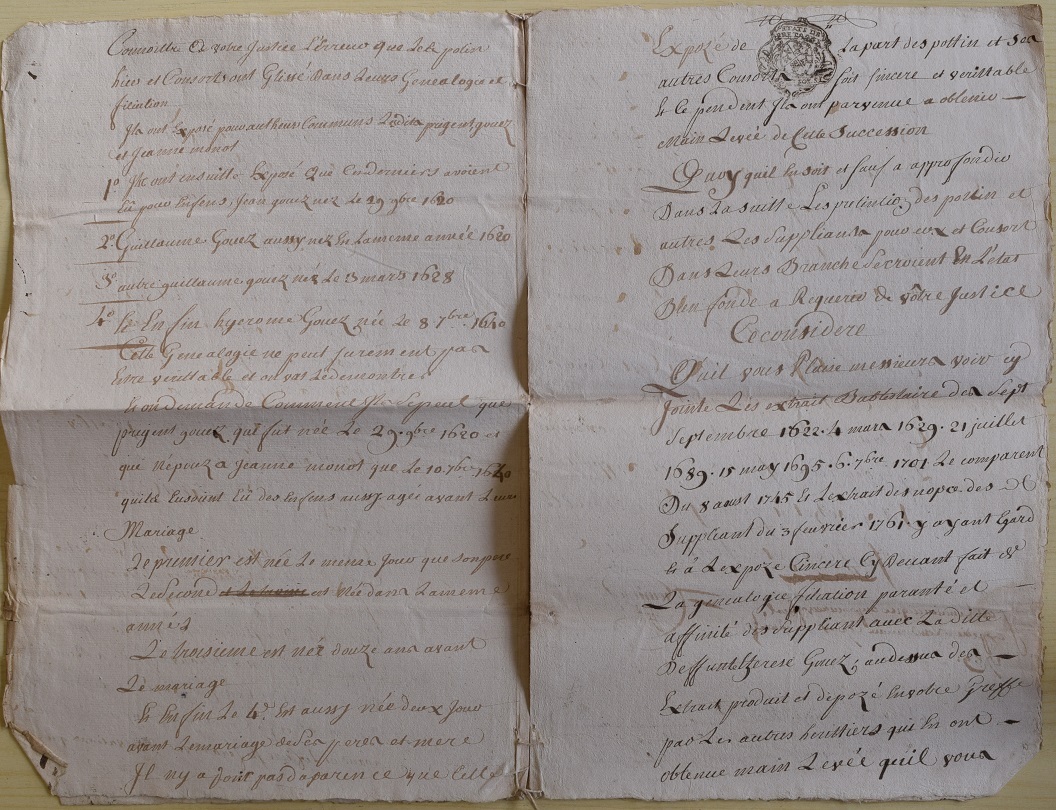 Connoitre Et votre Justice L'Erreur que Les potin
hier et Consort ont Glissé Dans Leurs Genealogie et
filintion
Ils ont Exposé pour autheurs Communs Ledit prigent gouez
et Jeanne monot
1º Ils ont ensuitte Exposé que Ces derniers avoient
Eü pour Enfens, Jean gouez nez Le 29 9bre 1620
2º Guillaume Gouez aussy nez En La meme année 1620
3º autre guillaume gouez néz Le 13 mars 1628
4º Et En fin hyerome Gouez née Le 8 7bre 1640
Cette Genealogie ne peut surement pas
Estre verittable et on vas Le demontrer
on demande Comment Il se peut que
prigent gouez qui fut née Le 29. 9bre 1620 et
qui népouza Jeanne monot que Le 10. 7bre 1640
quils Eussent Eü des Enfens aussy agée avant Leur
Mariage
Le premier est née Le meme Jour que son pere
Le Second est née dans La meme
année
Le troisieme est née douze ans avant
Le mariage
Et Enfin Le 4e. Est aussy née deux Jour
avant Le mariage de Ses peres et mere
Il ny a donc pas daparence que Cette
Expozé de La part des pottin et Ses
autres Consorts fois sincere et verittable
Et Ce pendent Ils ont parvenue a obtenir
Main Levée de Cette Succession
Quoy quil En soit et sauf a approfondir
Dans La suitte Les pretintions des pottin et
autres Les Suppliants pour eux et Consort
Dans Leurs Branche Se croient En L'etat
Bien fondé a Requerir de vôtre Justice
Ce considere
Quil vous Plaise messieurs voir cy
Jointe Les extrait Babtistaire des Sept
Septembre 1622. 4 mars 1629. 21 juillet
1689. 15 may 1695. 6. 7bre 1701 Le comparent
Du 8 aoust 1745 Et Lextrait des nopce des
Suppliant du 3 feuvrier 1761. y ayant Egard
Et á Lexpoze Cincere Cy Devant fait de
La genealogie filiation paranté et
affinité des Suppliant avec La ditte
Deffunte therese Gouez, au desus des
Extrait produit et depozé En votre Greffe
par Les autres herittiers qui En ont
obtenue main Levée quil vous